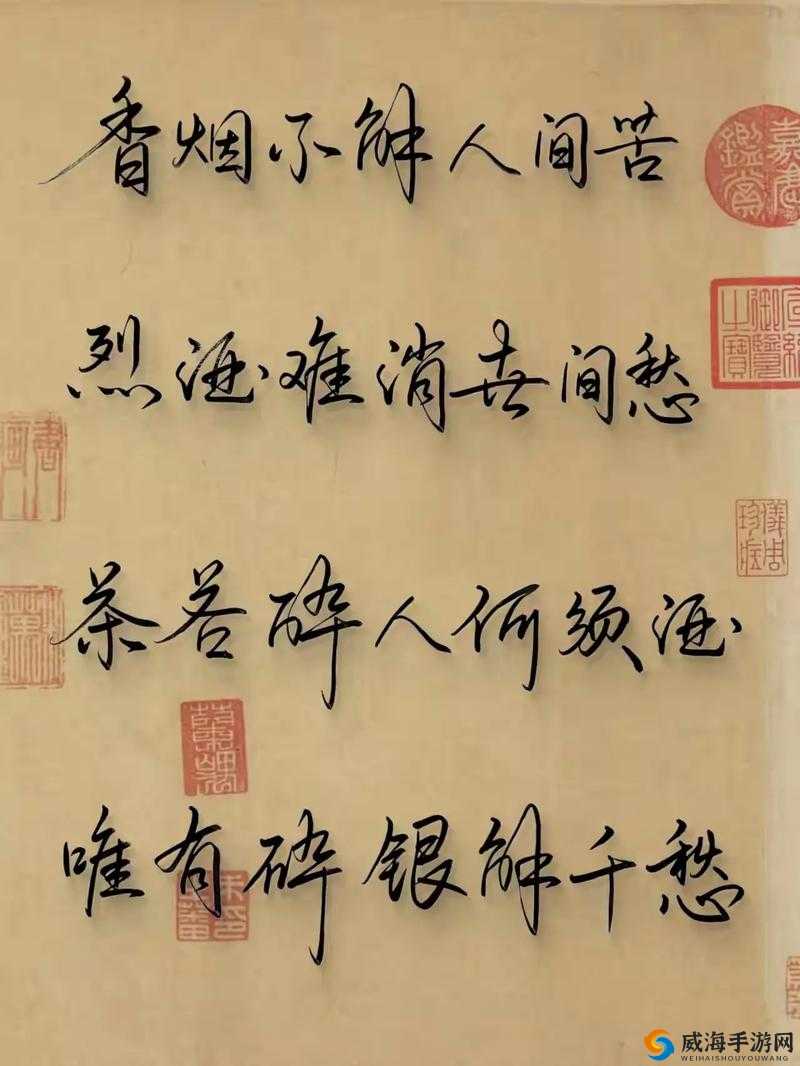 香烟不解人间苦
烈酒难消世间愁
茶若醉人何须酒
唯有碎银解千愁
威海手游网
WEIHAISHOUYOUWANG